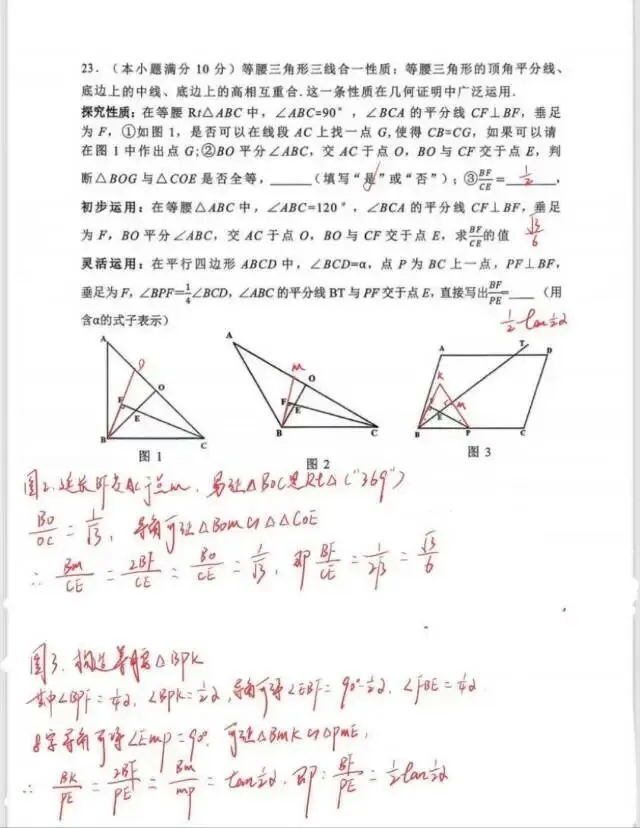 23. (本小题满分 10 分) 等腰三角形三线合一性质：等腰三角形的顶角平分线、
底边上的中线、底边上的高相互重合.这一条性质在几何证明中广泛运用.
探究性质：在等腰 Rt△ABC 中，∠ABC=90°，∠BCA 的平分线 CF⊥BF，垂足
为 F，①如图 1，是否可以在线段 AC 上找一点 G,使得 CB=CG，如果可以请
在图 1 中作出点 G;②BO 平分∠ABC，交 AC 于点 O，BO 与 CF 交于点 E，判
断△BOG 与△COE 是否全等，______（填写“是”或“否”）；③BF/CE= 1/2 ，
初步运用：在等腰△ABC 中，∠ABC=120°，∠BCA 的平分线 CF⊥BF，垂足
为 F，BO 平分∠ABC，交 AC 于点 O，BO 与 CF 交于点 E，求BF/CE的值 √3/6
灵活运用：在平行四边形 ABCD 中，∠BCD=α，点 P 为 BC 上一点，PF⊥BF，
垂足为 F，∠BPF=1/4∠BCD，∠ABC 的平分线 BT 与 PF 交于点 E，直接写出BF/PE=____（用
含α的式子表示） 1/2 tan1/2α
A O F E B C
图 1
A M O F E B C
图 2
A T D K M E B P C
图 3
图2. 延长BF交AC于点M, 易证△BOC是Rt△("369")
BO/OC = 1/√3, 导角可证△BOM∽△COE
∴ BM/CE = 2BF/CE = BO/CE = 1/√3, 即 BF/CE = 1/2√3 = √3/6
图3. 构造等腰△BPK
其中∠BPF=1/4α, ∠BPK=1/2α, 导角可得∠EBF=90°-1/2α, ∠FBE=1/4α
8字导角可得∠EMP=90°, 可证△BMK∽△PME,
∴ BK/PE = 2BF/PE = BM/MP = tan1/2α. 即: BF/PE = 1/2 tan1/2α